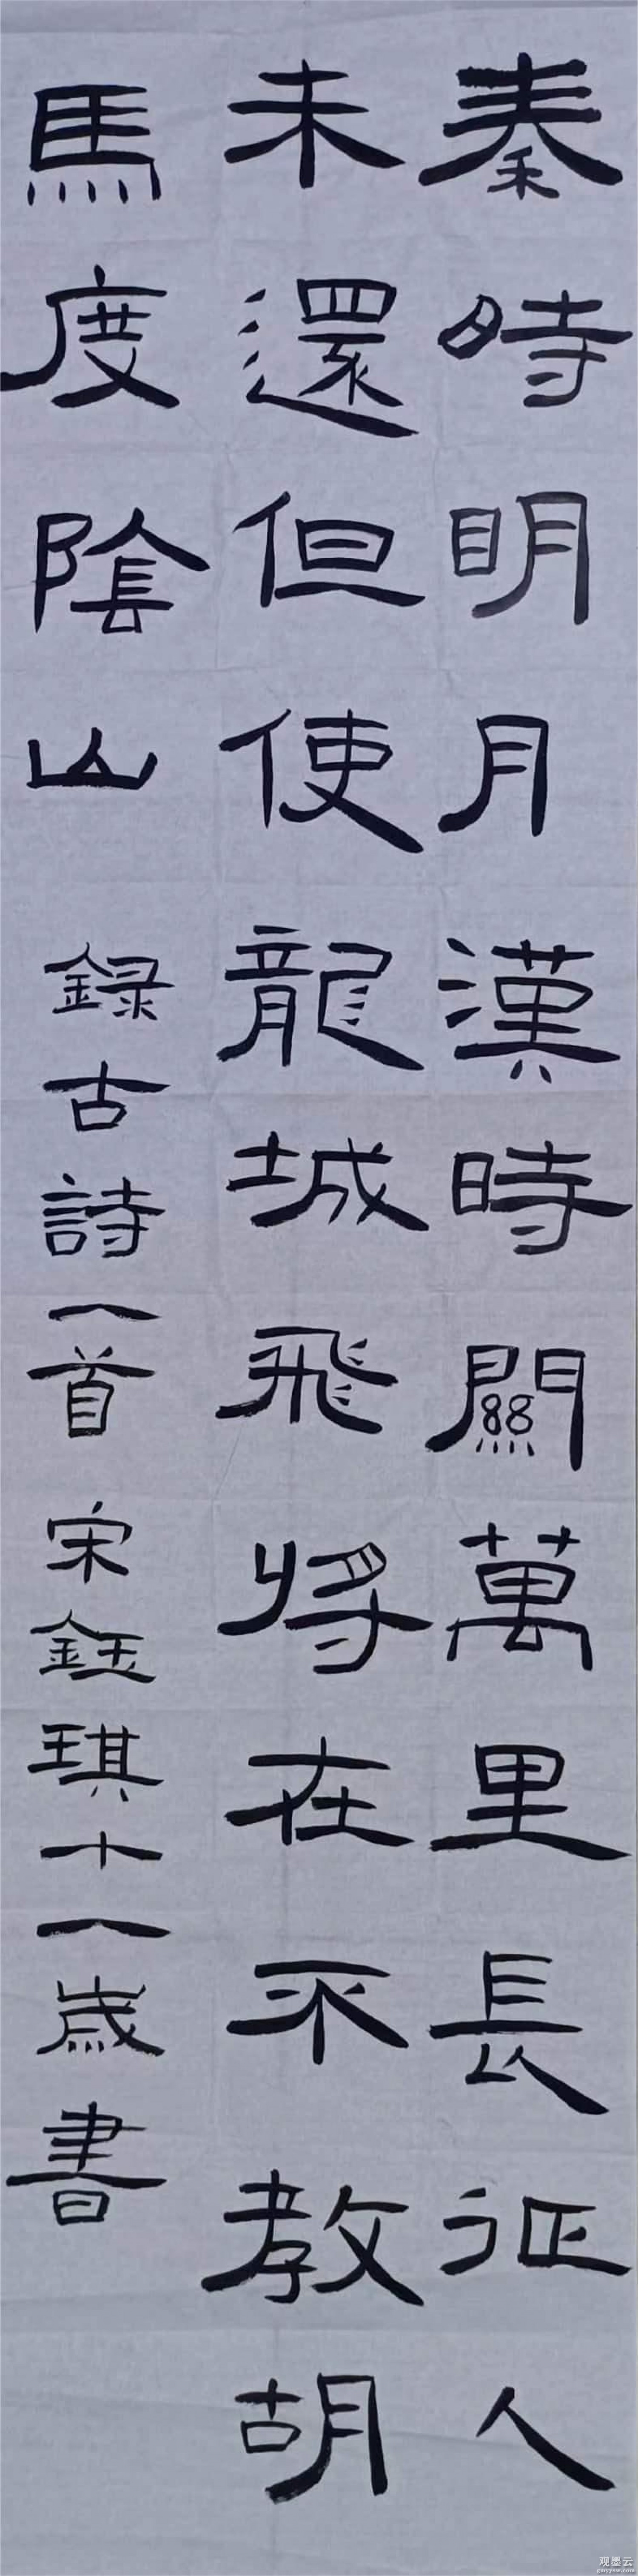 秦時明月漢時關萬里長征人
未還但使龍城飛将在不教胡
馬度陰山 錄古詩一首 宋鈺琪十一歲書
观墨云